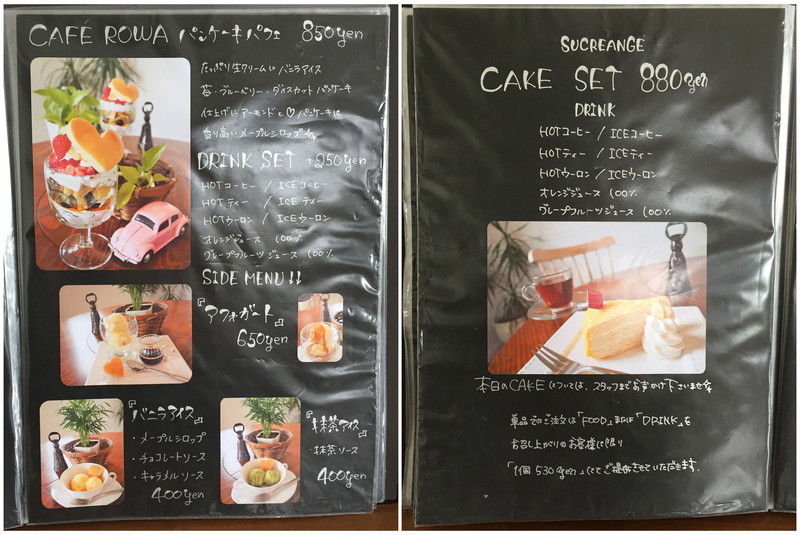 CAFÉ ROWA パンケーキパフェ 850yen
たっぷり生クリームに バニラアイス
苺・ブルーベリー・ダイスカット パンケーキ
仕上げに アーモンドと♡パンケーキに
香り高いメープルシロップを
DRINK SET +250yen
HOTコーヒー / ICEコーヒー
HOT ティー / ICE ティー
HOTウーロン / ICEウーロン
オレンジジュース 100%
グレープフルーツ ジュース 100%
SIDE MENU!!
『アフォガード』
650yen
『バニラアイス』
・メープルシロップ
・チョコレートソース
・キャラメルソース
400yen
『抹茶アイス』
・抹茶ソース
400yen
SUCREANGE
CAKE SET 880yen
DRINK
HOTコーヒー / ICEコーヒー
HOTティー / ICEティー
HOTウーロン / ICEウーロン
オレンジジュース 100%
グレープフルーツ ジュース 100%
本日のCAKEについては、スタッフまでお声かけ下さいませ
単品でのご注文は「FOOD」または「DRINK」を
お召し上がりのお客様に限り
「1個 530yen」にてご提供させていただきます.